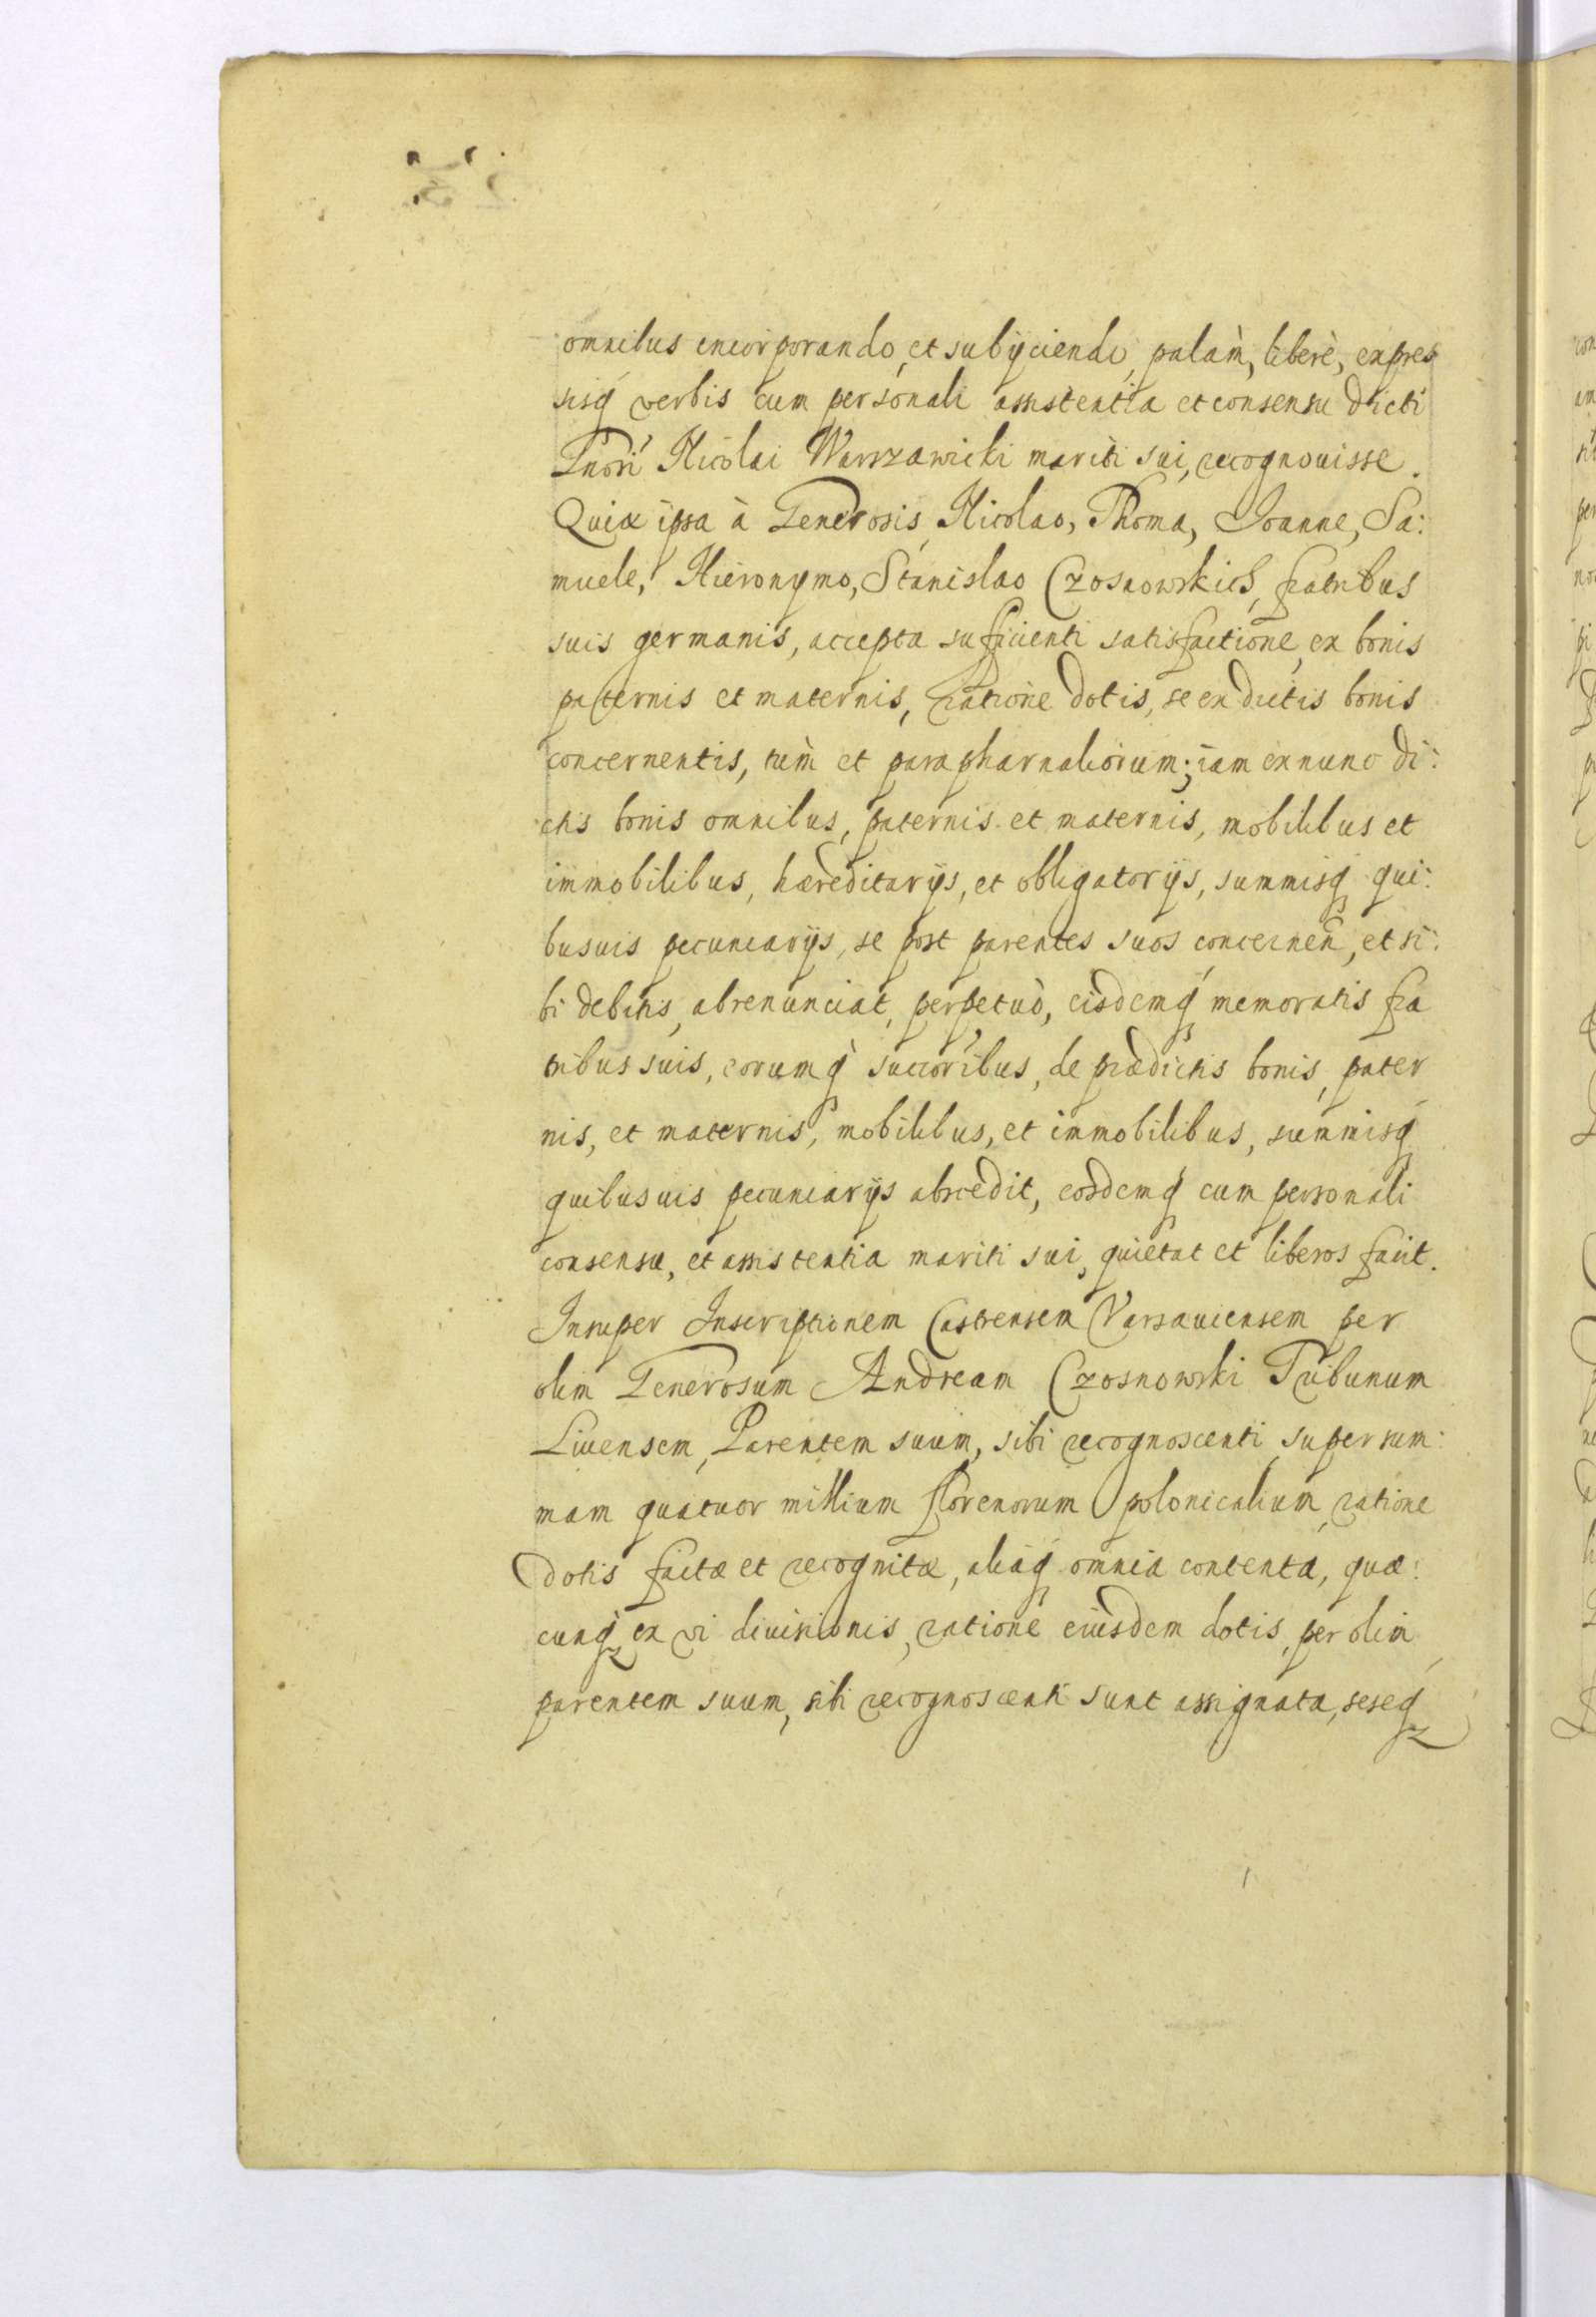 omnibus incorporando, et subijciendo, palàm, liberè, expres
sisq́ verbis cum personali assistentia et consensu dicti
Gnosi Nicolai Warszawicki mariti sui, recognouisse.
Quia ipsa à Generosis, Nicolao, Thoma, Joanne, Sa:
muele, Hieronymo, Stanislao Czosnowskich, fratribus
suis germanis, accepta sufficienti satisfactione, ex bonis
paternis et maternis, ratione dotis, se ex dictis bonis
concernentis, tùm et parapharnaliorum; iam ex nunc di:
ctis bonis omnibus, paternis et maternis, mobilibus et
immobilibus, hæreditarijs, et obligatorijs, summisq qui:
busuis pecuniarijs, se post parentes suos concernen̄, et si:
bi debitis, abrenunciat, perpetuò, eisdemq́ memoratis fra
tribus suis, eorumq̀ succoribus, de prædictis bonis, pater
nis, et maternis, mobilibus, et immobilibus, summisq́
quibusuis pecuniarijs abscedit, eosdemq́ cum personali
consensu, et assistentia mariti sui, quietat et liberos facit.
Insuper Inscriptionem Castrensem Varsauiensem per
olim Generosum Andream Czosnowski Tribunum
Liuensem, Parentem suum, sibi recognoscenti, super sum:
mam quatuor millium florenorum polonicalium, ratione
dotis factæ et recognitæ, aliaq́ omnia contenta, quæ:
cunq̀ ex vi diuisionis, ratione eiusdem dotis, per olim
parentem suum, sibi recognoscenti sunt assignata, seseq́